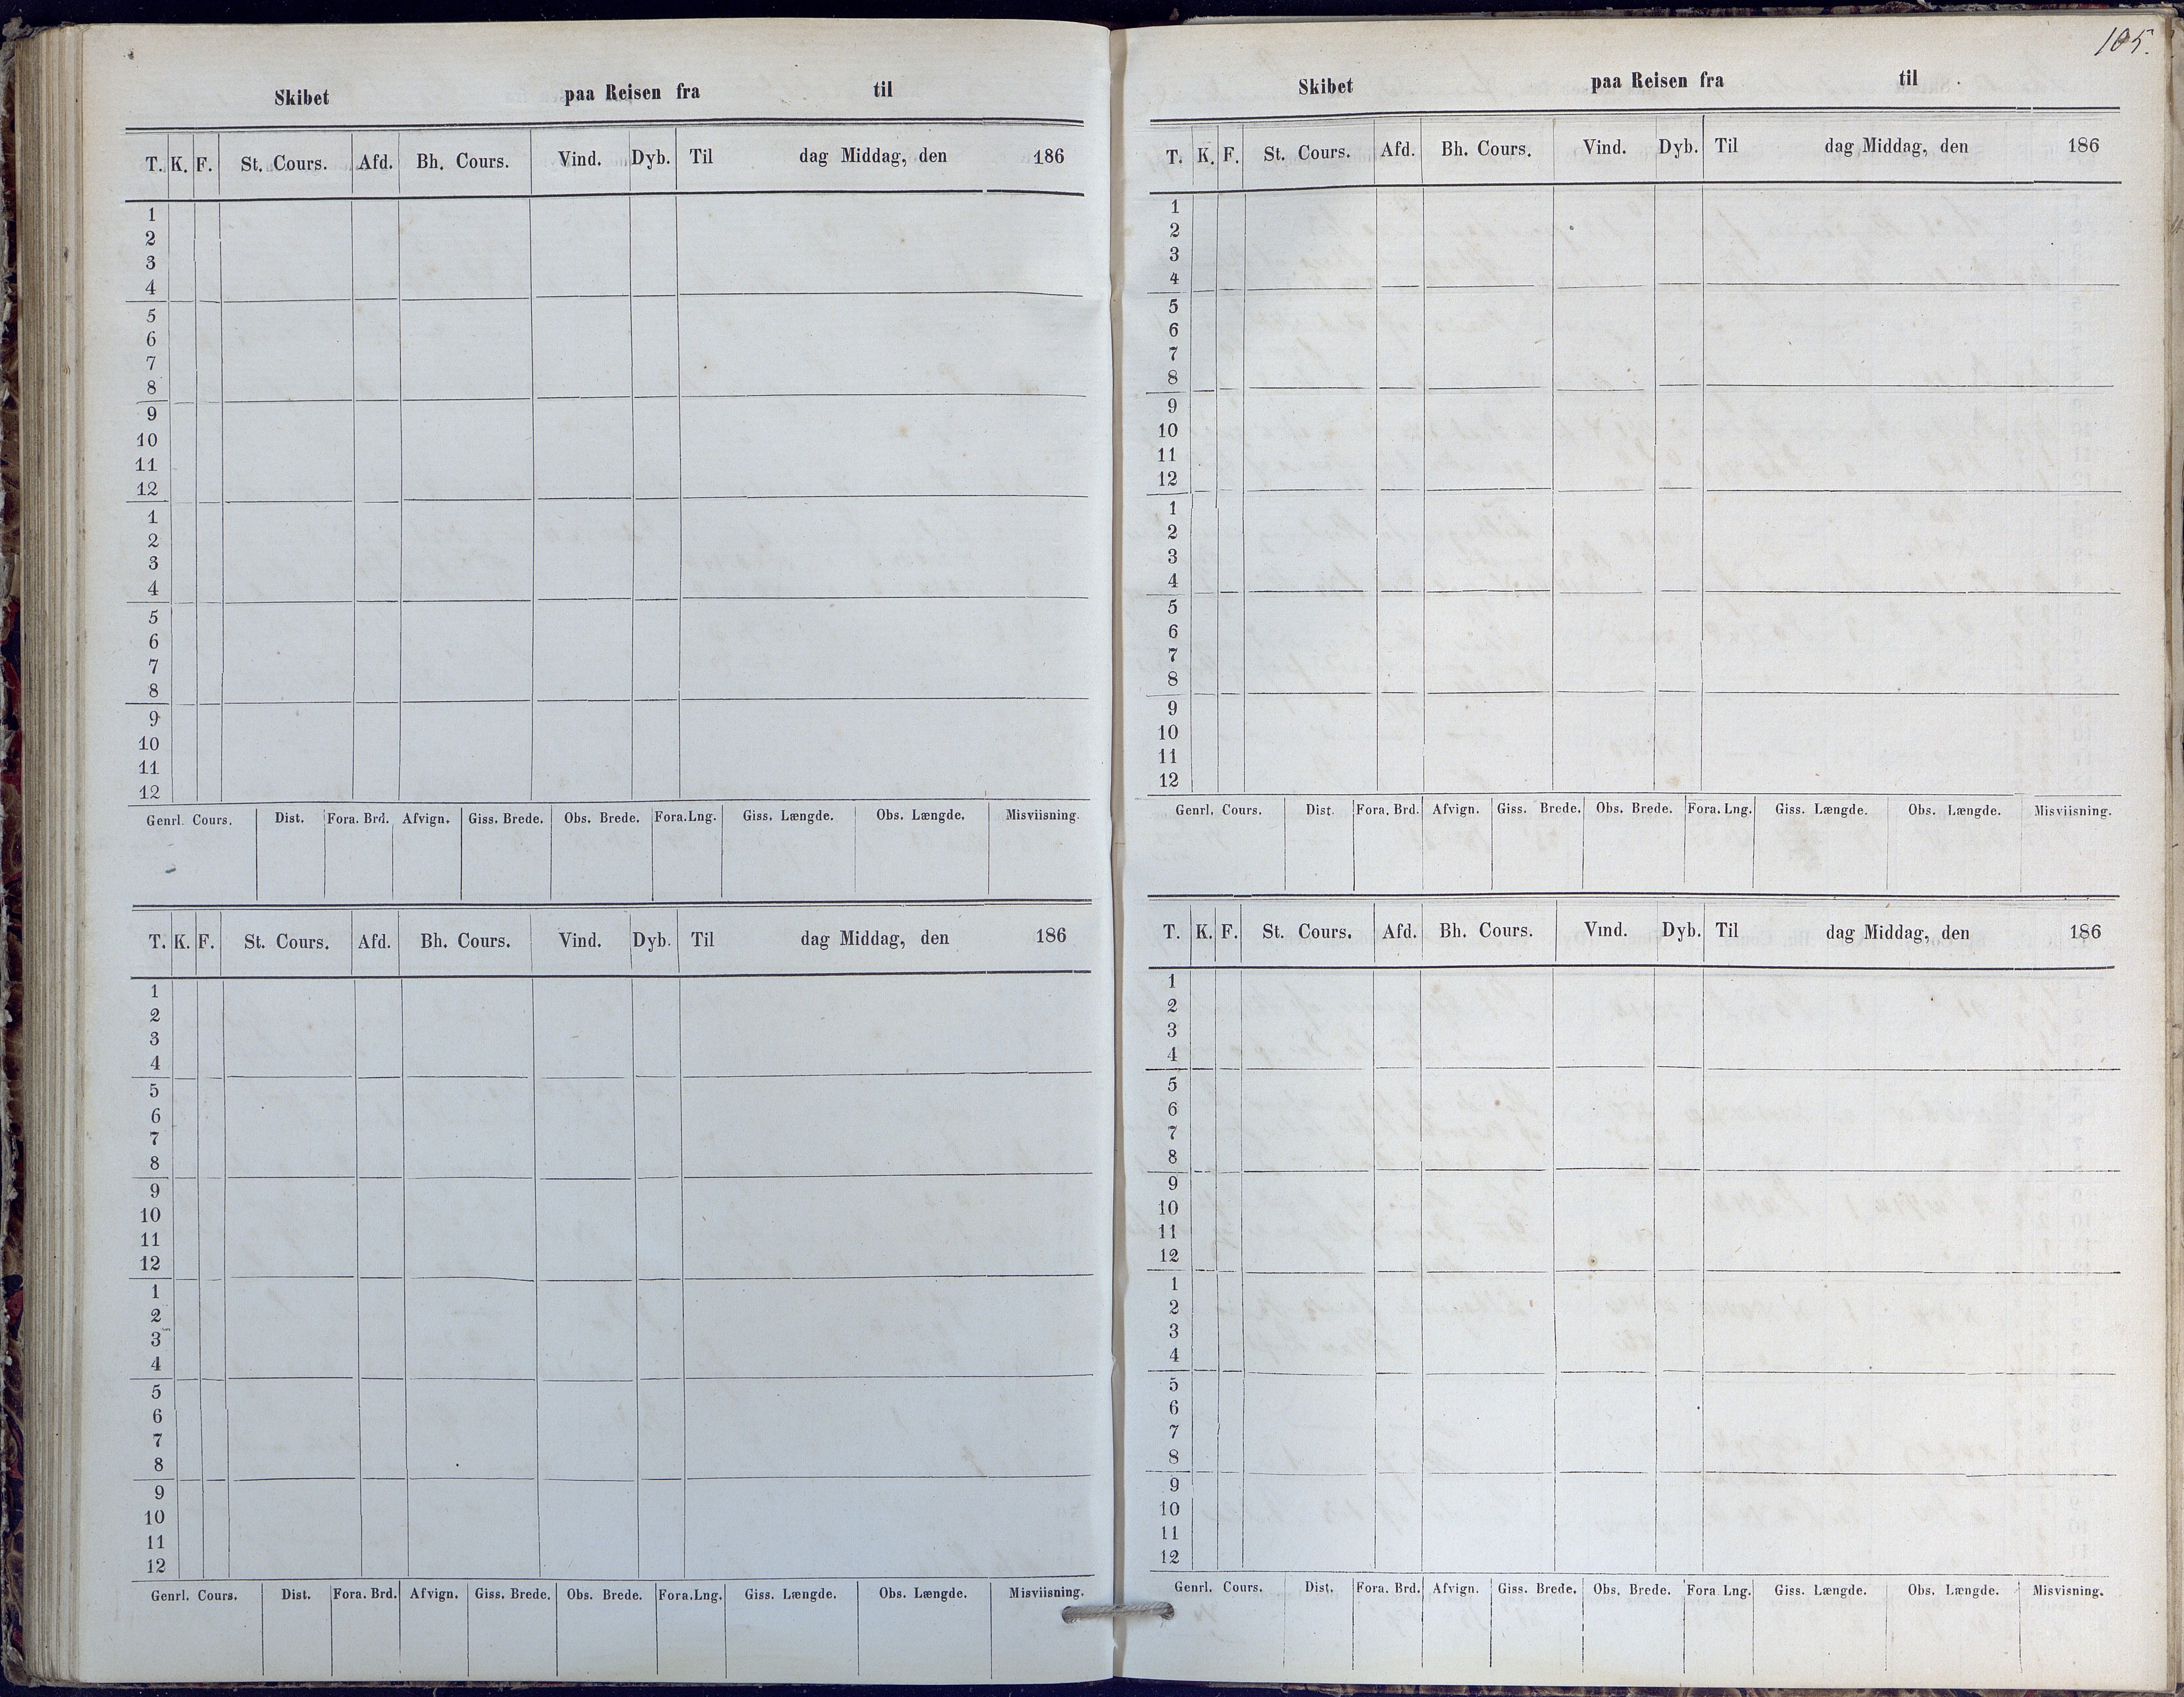 Skibet paa Reisen fra til
T. K. F. St. Cours. Afd. Bh. Cours. Vind. Dyb. Til dag Middag, den 186
1
2
3
4
5
6
7
8
9
10
11
12
1
2
3
4
5
6
7
8
9
10
11
12
Genrl. Cours. Dist. Fora. Brd. Afvign. Giss. Brede. Obs. Brede. Fora. Lng. Giss. Længde. Obs. Længde. Misviisning.
T. K. F. St. Cours. Afd. Bh. Cours. Vind. Dyb. Til dag Middag, den 186
1
2
3
4
5
6
7
8
9
10
11
12
1
2
3
4
5
6
7
8
9
10
11
12
Genrl. Cours. Dist. Fora. Brd. Afvign. Giss. Brede. Obs. Brede. Fora. Lng. Giss. Længde. Obs. Længde. Misviisning.
105.
Skibet paa Reisen fra til
T. K. F. St. Cours. Afd. Bh. Cours. Vind. Dyb. Til dag Middag, den 186
1
2
3
4
5
6
7
8
9
10
11
12
1
2
3
4
5
6
7
8
9
10
11
12
Genrl. Cours. Dist. Fora. Brd. Afvign. Giss. Brede. Obs. Brede. Fora. Lng. Giss. Længde. Obs. Længde. Misviisning.
T. K. F. St. Cours. Afd. Bh. Cours. Vind. Dyb. Til dag Middag, den 186
1
2
3
4
5
6
7
8
9
10
11
12
1
2
3
4
5
6
7
8
9
10
11
12
Genrl. Cours. Dist. Fora. Brd. Afvign. Giss. Brede. Obs. Brede. Fora Lng. Giss. Længde. Obs. Længde. Misvisning.